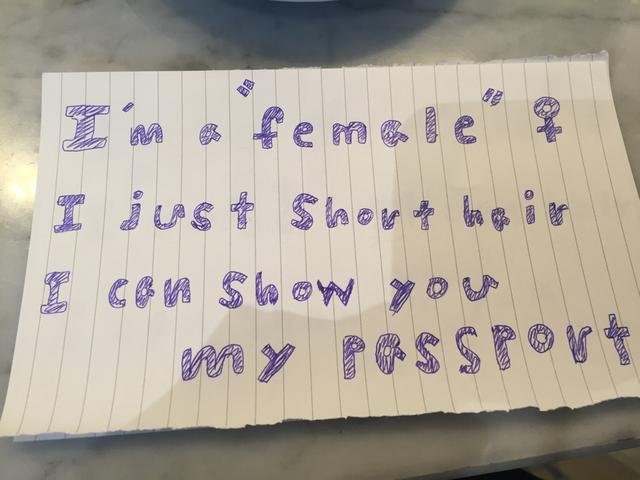 I'm a "female" ♀
I just Short hair
I can Show you
my passport